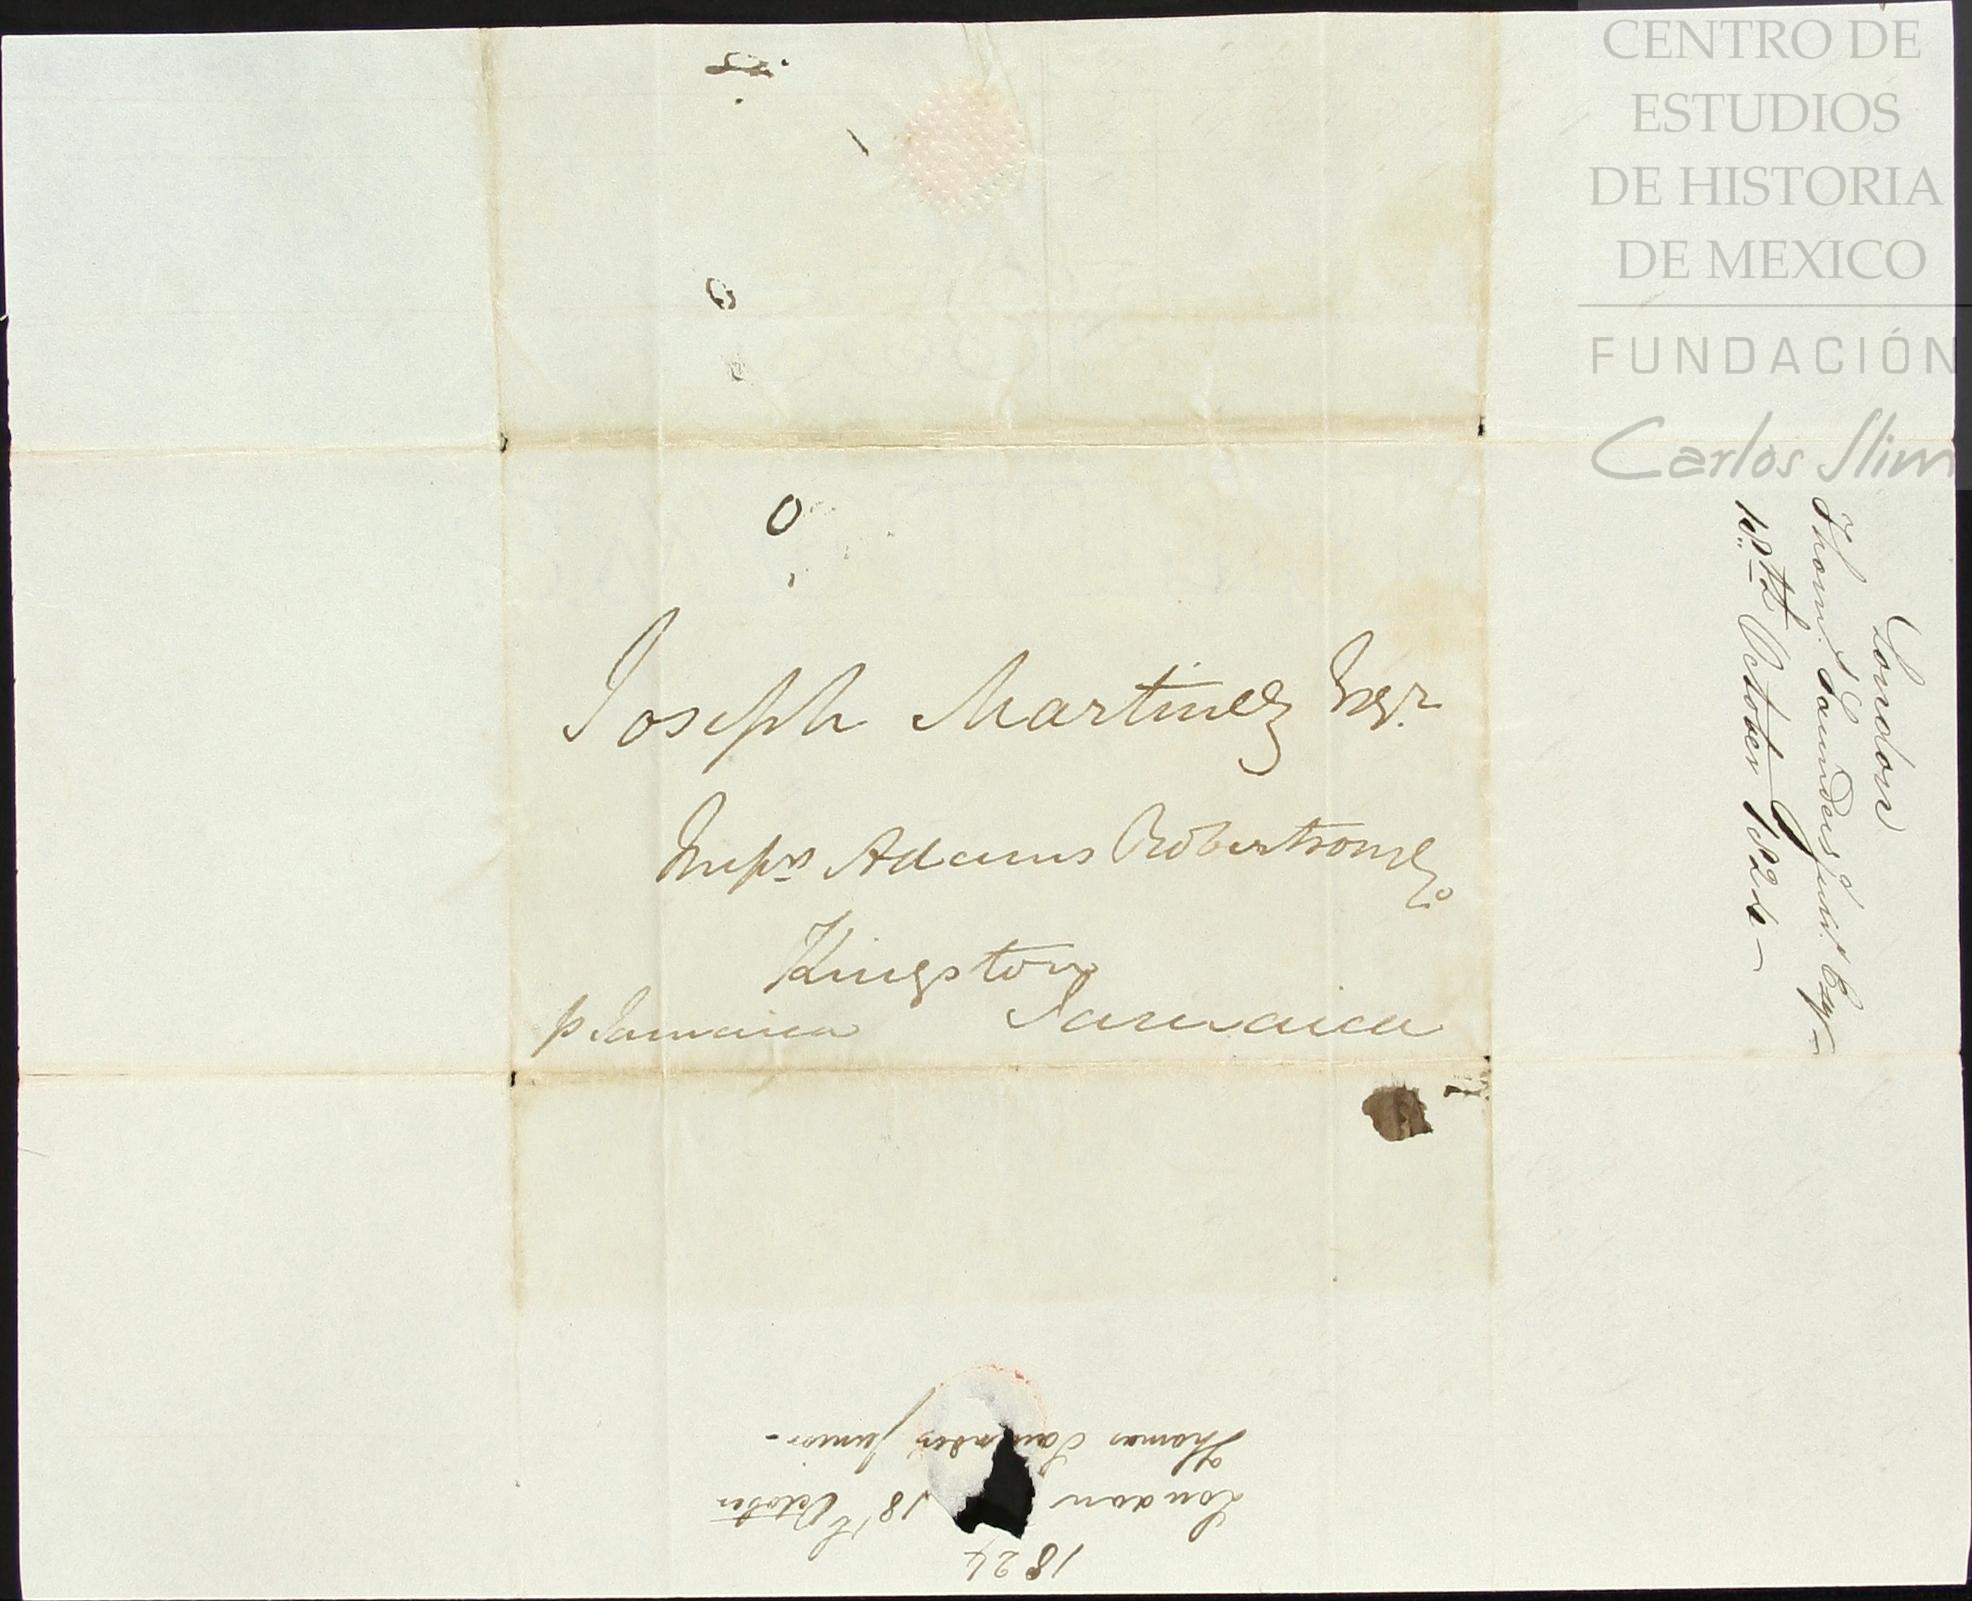 CENTRO DE
ESTUDIOS
DE HISTORIA
DE MEXICO
FUNDACIÓN
Carlos Slim
Joseph Martinez Esqr.
Messrs Adams Robertson & Co
Kingston
p Jamaica Jamaica
London
Thom. Saunders junr. Esqr—
18th October 1824—
1824
London 18th October
Thomas Saunders Junior-